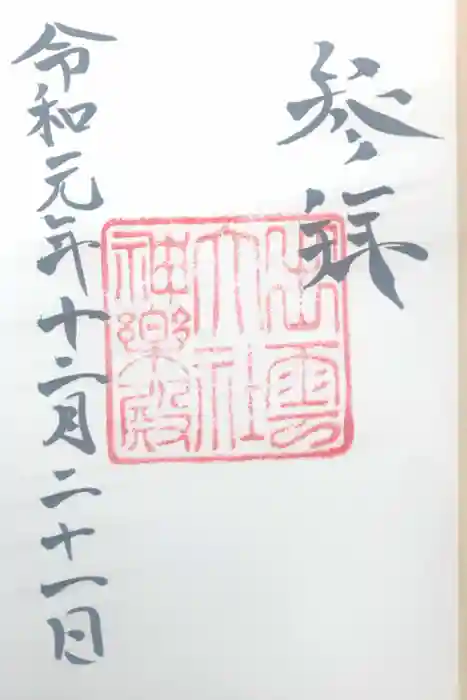 参拝
出雲
大社
神楽殿
令和元年十二月二十一日